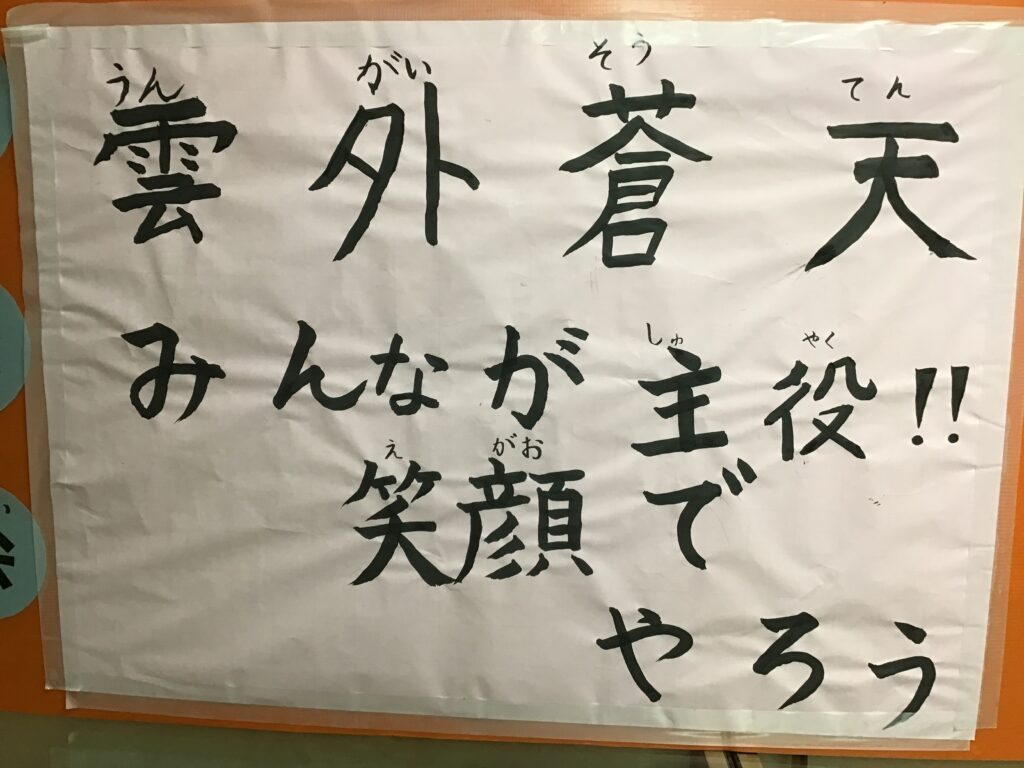 うん がい そう てん
雲外蒼天
しゅ やく
みんなが主役!!
え がお
笑顔で
やろう